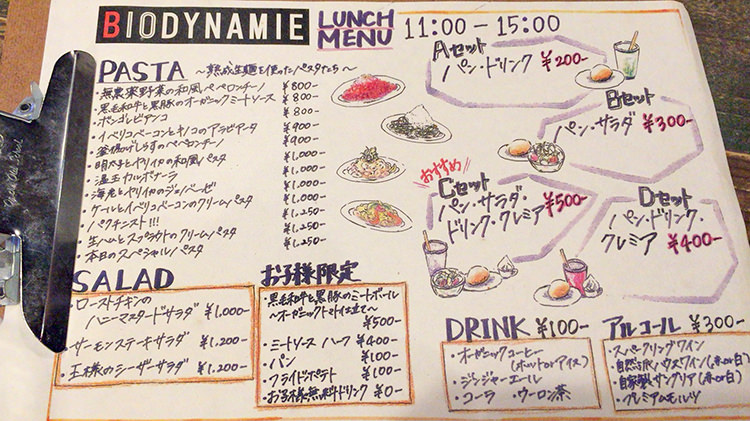 BIODYNAMIE
LUNCH MENU
11:00-15:00
PASTA
〜熟成生麺を使ったパスタたち〜
・無農薬野菜の和風ペペロンチーノ ¥800-
・黒毛和牛と黒豚のオーガニックミートソース ¥800-
・ボンゴレビアンコ ¥800-
・イベリコベーコンとキノコのアラビアータ ¥900-
・釜揚げしらすのペペロンチーノ ¥900-
・明太子とヤリイカの和風パスタ ¥1,000-
・温玉カルボナーラ ¥1,000-
・海老とヤリイカのジェノベーゼ ¥1,000-
・ケールとイベリコベーコンのクリームパスタ ¥1,000-
・パクチニスト!!! ¥1,250-
・生ハムとスプラウトのクリームパスタ ¥1,250-
・本日のスペシャルパスタ ¥1,250-
Aセット
パン・ドリンク ¥200-
Bセット
パン・サラダ ¥300-
おすすめ
Cセット
パン・サラダ・
ドリンク・クレミア ¥500-
Dセット
パン・ドリンク・
クレミア ¥400-
SALAD
・ローストチキンの
ハニーマスタードサラダ ¥1,000-
・サーモンステーキサラダ ¥1,200-
・王様のシーザーサラダ ¥1,200-
お子様限定
・黒毛和牛と黒豚のミートボール
〜オーガニックトマト仕立て〜
¥500-
・ミートソース ハーフ ¥400-
・パン ¥100-
・フライドポテト ¥100-
・お子様無料ドリンク ¥0-
DRINK ¥100-
・オーガニックコーヒー
(ホットorアイス)
・ジンジャーエール
・コーラ ・ウーロン茶
アルコール ¥300-
・スパークリングワイン
・自然派ハウスワイン(赤or白)
・自家製サングリア(赤or白)
・プレミアムモルツ